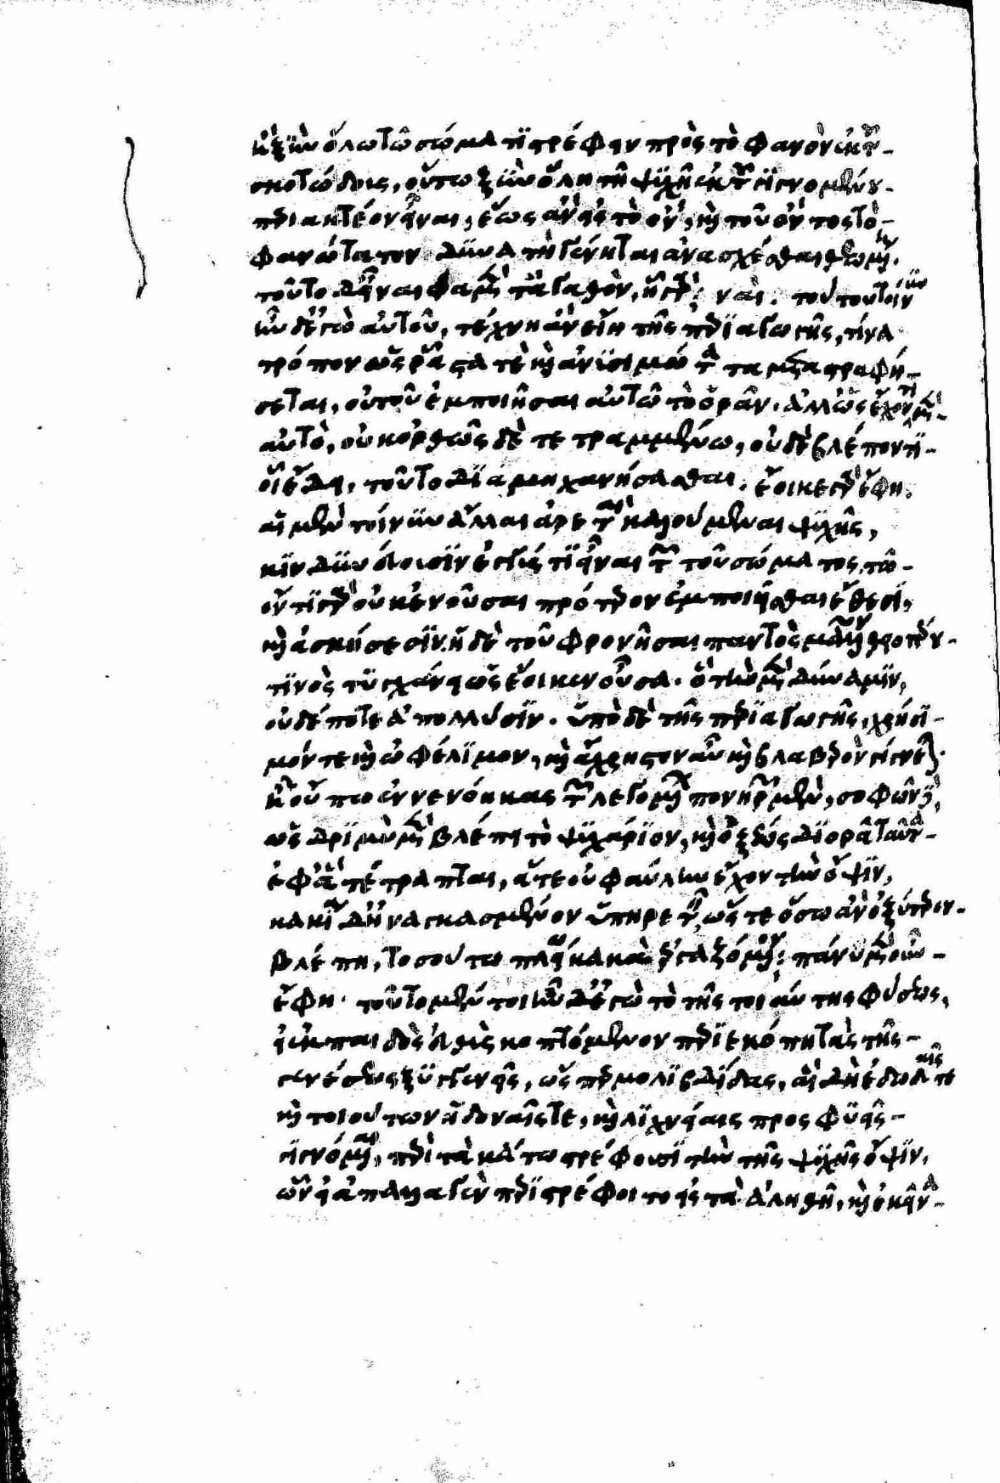 ἢ ξὺν ὅλω τῶ σώματι στρέφειν πρὸς τὸ φανὸν ἐκ τοῦ
σκοτώδους, οὕτω ξὺν ὅλη τῆ ψυχῆ ἐκ τοῦ γιγνομένου
περιακτέον εἶναι, ἕως ἂν εἰς τὸ ὂν, καὶ τοῦ ὄντος τὸ
φανώτατον δυνατὴ γένηται ἀνασχέσθαι θεωμένη.
τοῦτο δ' εἶναι φαμὲν τἀγαθὸν, ἦ γάρ; ναί. τούτου τοίνυν
ἦν δ' ἐγὼ αὐτοῦ, τέχνη ἂν εἴη τῆς περιαγωγῆς, τίνα
τρόπον ὡς ῥᾶστά τε καὶ ἀνυσιμώτατα μεταστραφή-
σεται, οὐ τοῦ ἐμποιῆσαι αὐτῶ τὸ ὁρᾶν. ἀλλ' ὡς ἔχοντι μὲν
αὐτὸ, οὐκ ὀρθῶς δὲ τετραμμένω, οὐδὲ βλέποντι
οἷ ἔδει, τοῦτο διαμηχανήσασθαι. ἔοικε γὰρ ἔφη.
αἱ μὲν τοίνυν ἄλλαι ἀρεταὶ καλούμεναι ψυχῆς,
κινδυνεύουσιν ἐγγύς τι εἶναι τῶν τοῦ σώματος. τῶ
ὄντι γὰρ οὐκ ἐνοῦσαι πρότερον ἐμποιεῖσθαι ἔθεσι,
καὶ ἀσκήσεσιν. ἡ δὲ τοῦ φρονῆσαι παντὸς μᾶλλον θειοτέρου
τινὸς τυγχάνει ὡς ἔοικεν οὖσα. ὃ τὴν μὲν δύναμιν,
οὐδέποτε ἀπόλλυσιν. ὑπὸ δὲ τῆς περιαγωγῆς, χρήσι-
μόν τε καὶ ὠφέλιμον, καὶ ἄχρηστον αὖ καὶ βλαβερὸν γίγνεται.
ἢ οὔπω ἐννενόηκας τῶν λεγομένων πονηρῶν μὲν, σοφῶν δὲ,
ὡς δριμὺ μὲν βλέπει τὸ ψυχάριον, καὶ ὀξέως διορᾶ ταῦτα
ἐφ' ἃ τέτραπται, ἅτε οὐ φαύλην ἔχον τὴν ὄψιν,
κακία δ' ἠναγκασμένον ὑπηρετεῖν, ὥστε ὅσω ἂν ὀξύτερον
βλέπη, τοσούτω πλείω κακὰ ἐργαζόμενον; πάνυ μὲν οὖν
ἔφη. τοῦτο μέντοι ἦν δ' ἐγὼ τὸ τῆς τοιαύτης φύσεως,
εἰ ἐκ παιδὸς εὐθὺς κοπτόμενον περιεκόπη τὰς τῆς
γενέσεως ξυγγενεῖς, ὥσπερ μολιβδίδας, αἳ δὴ ἐδωδαῖς τε
καὶ τοιούτων ἡδοναῖς τε, καὶ λιχνείαις προσφυεῖς
γιγνόμεναι, περὶ τὰ κάτω στρέφουσι τὴν τῆς ψυχῆς ὄψιν,
ὧν εἰ ἀπαλλαγὲν περιστρέφοιτο εἰς τὰ ἀληθῆ, καὶ ἐκεῖνα